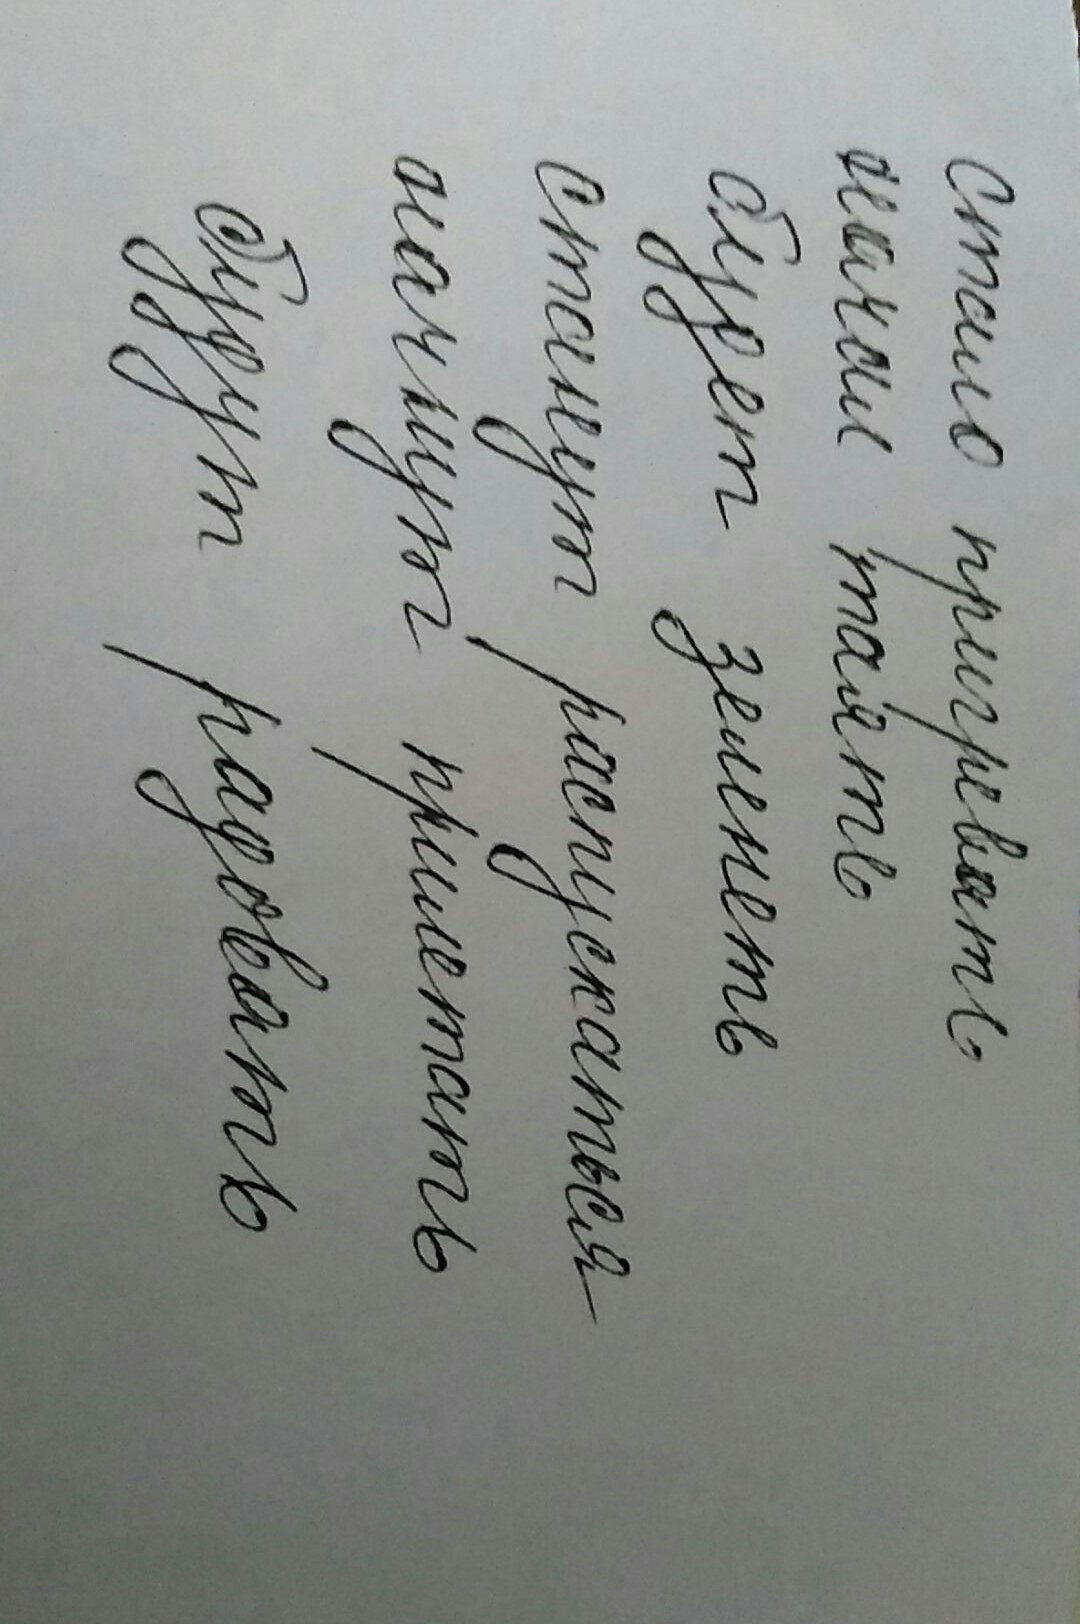 Стало пригревать
начал таять
будет зеленеть
станут распускаться
начнут прилетать
будут радовать